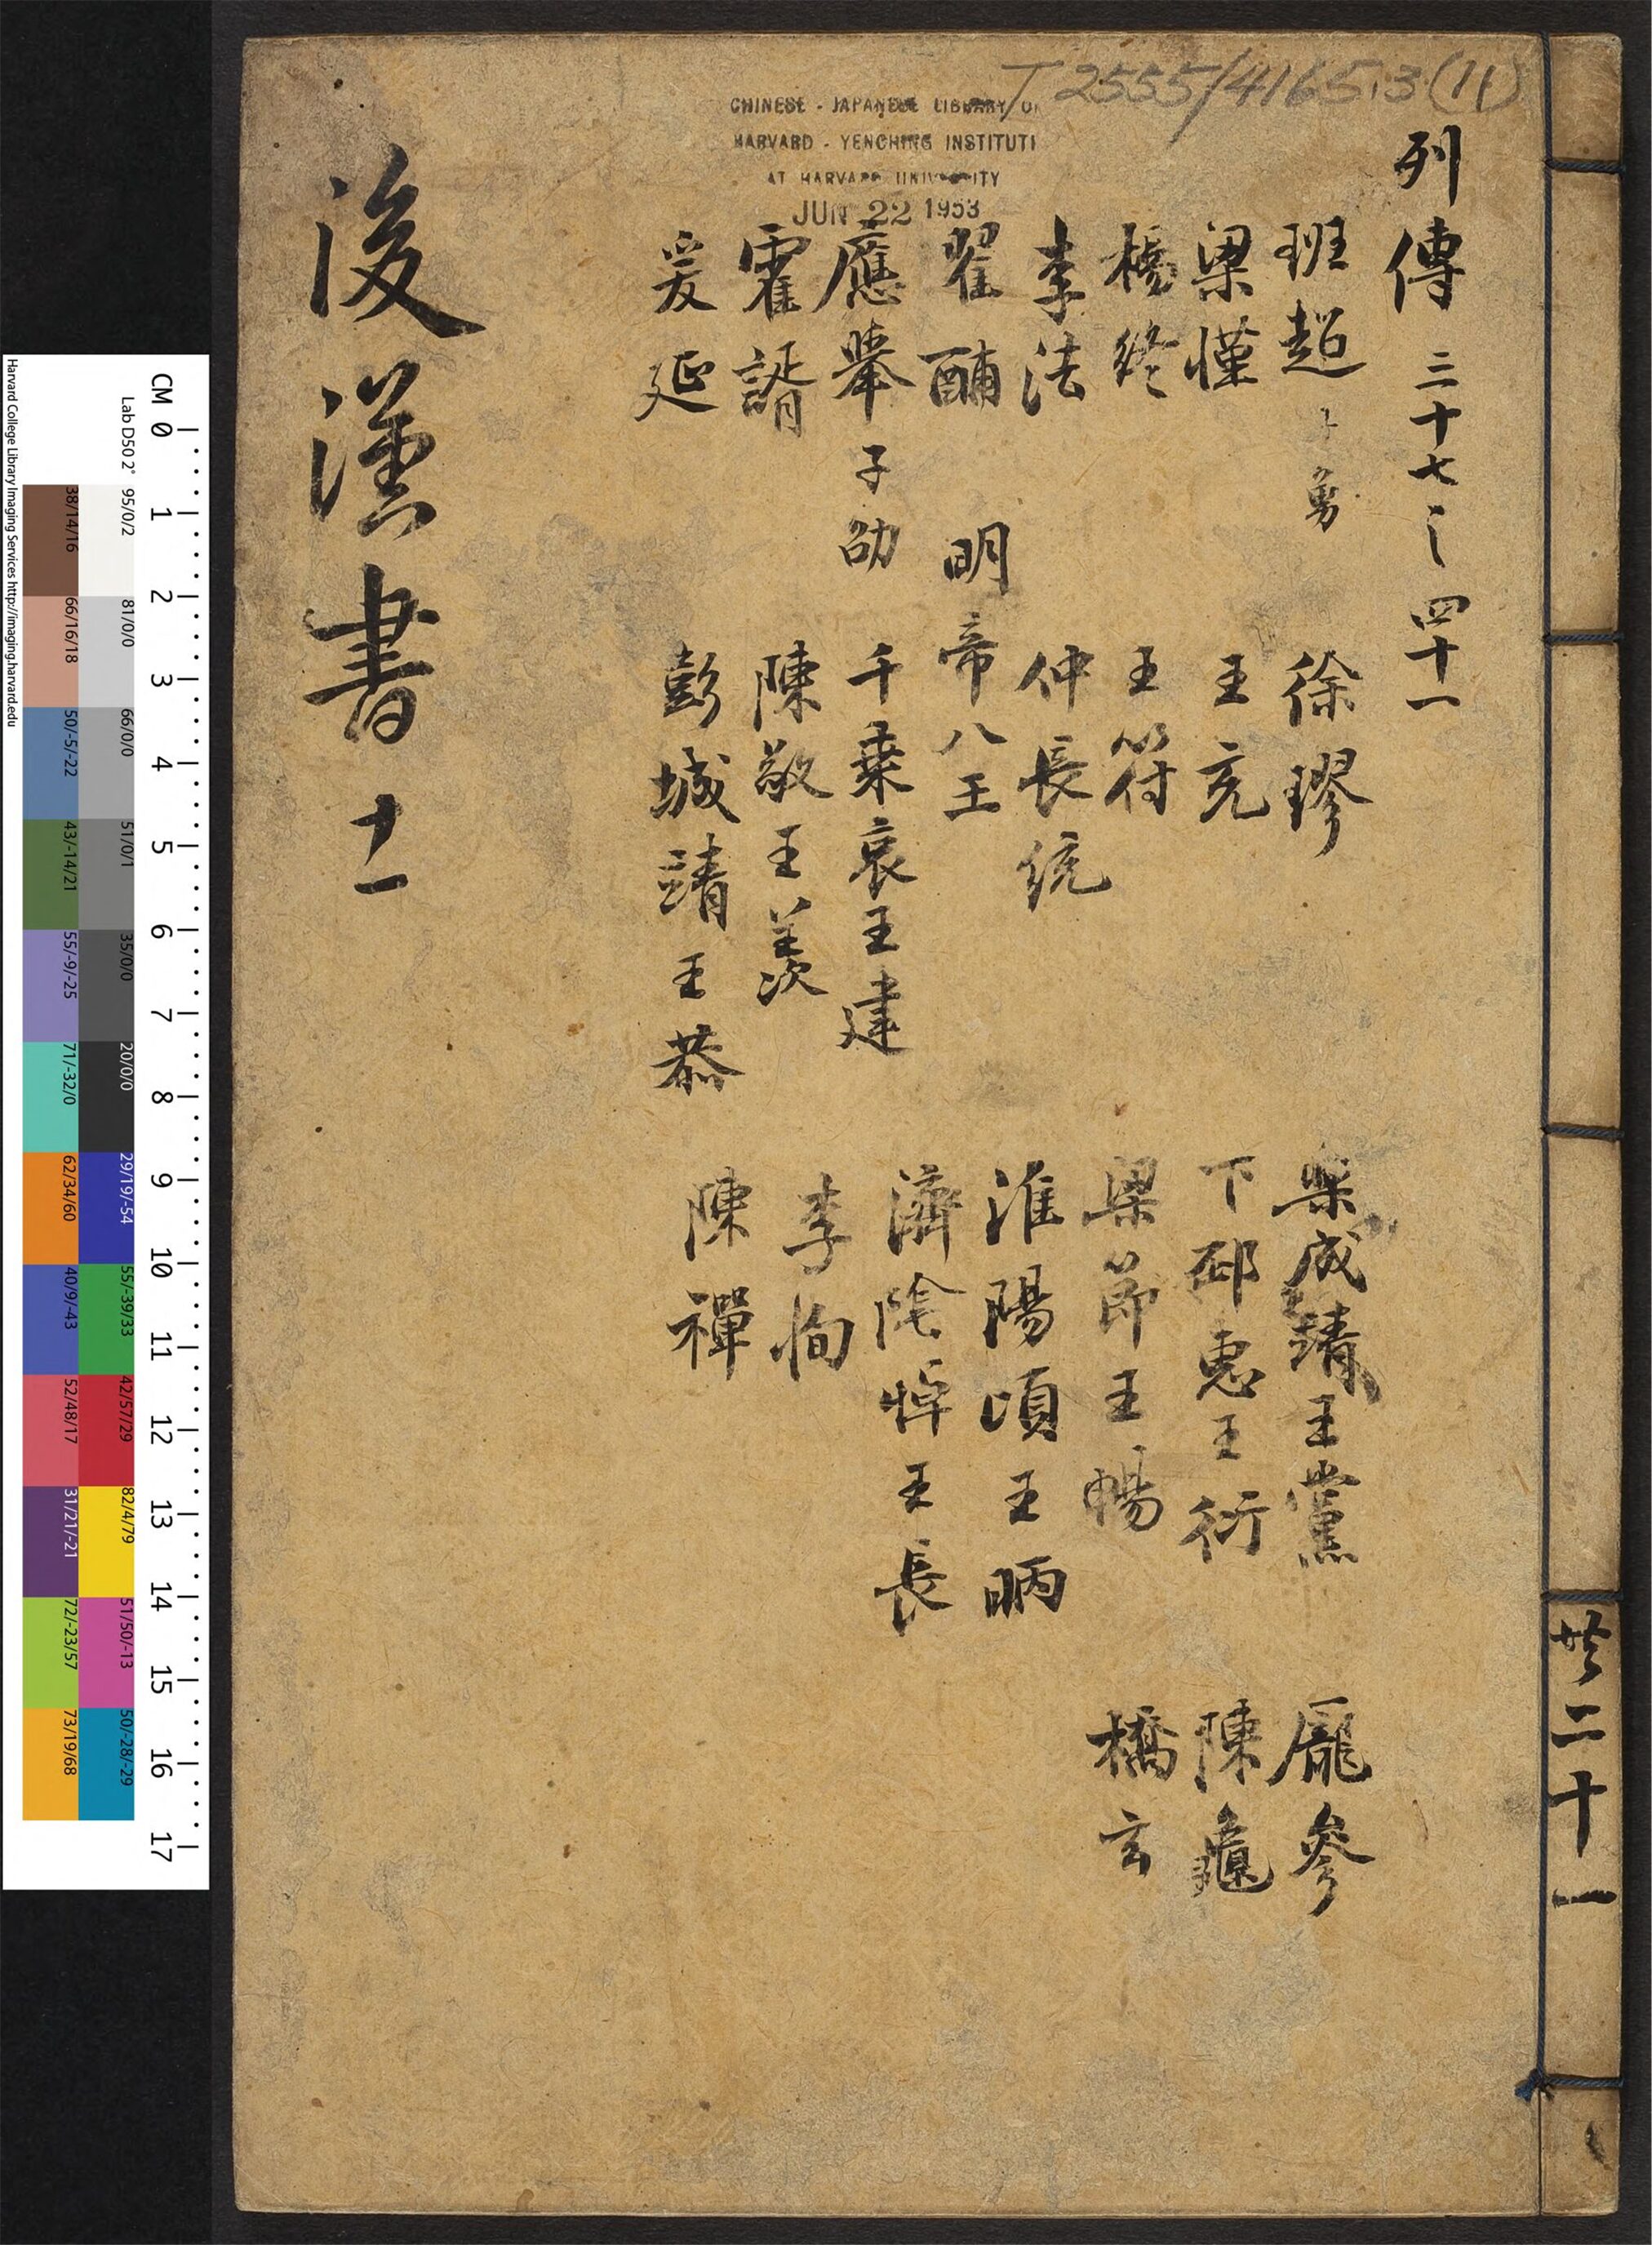 T 2555/4165.3 (11)
CHINESE - JAPANESE LIBRARY OF
HARVARD - YENCHING INSTITUTE
AT HARVARD UNIVERSITY
JUN 22 1953
列傳 三十七之四十一
班超 子勇
梁慬
楊終
李法
翟酺
應奉 子劭
霍諝
爰延
徐璆
王充
王符
仲長統
明帝八王
千乗哀王建
陳敬王羨
彭城靖王恭
樂成靖王黨
下邳惠王衍
梁節王暢
淮陽頃王昞
濟陰悼王長
李恂
陳禪
龐參
陳龜
橋玄
後漢書 十一
共二十一
CM 0 1 2 3 4 5 6 7 8 9 10 11 12 13 14 15 16 17
Lab D50 2° 95/0/2 81/0/0 66/0/0 51/0/1 35/0/0 20/0/0 29/19/-54 55/-39/33 42/57/29 82/4/79 51/50/-13 50/-28/-29
38/14/16 66/16/18 50/-5/-22 43/-14/21 55/-9/-25 71/-32/0 62/34/60 40/9/-43 52/48/17 31/21/-21 72/-23/57 73/19/68
Harvard College Library Imaging Services http://imaging.harvard.edu